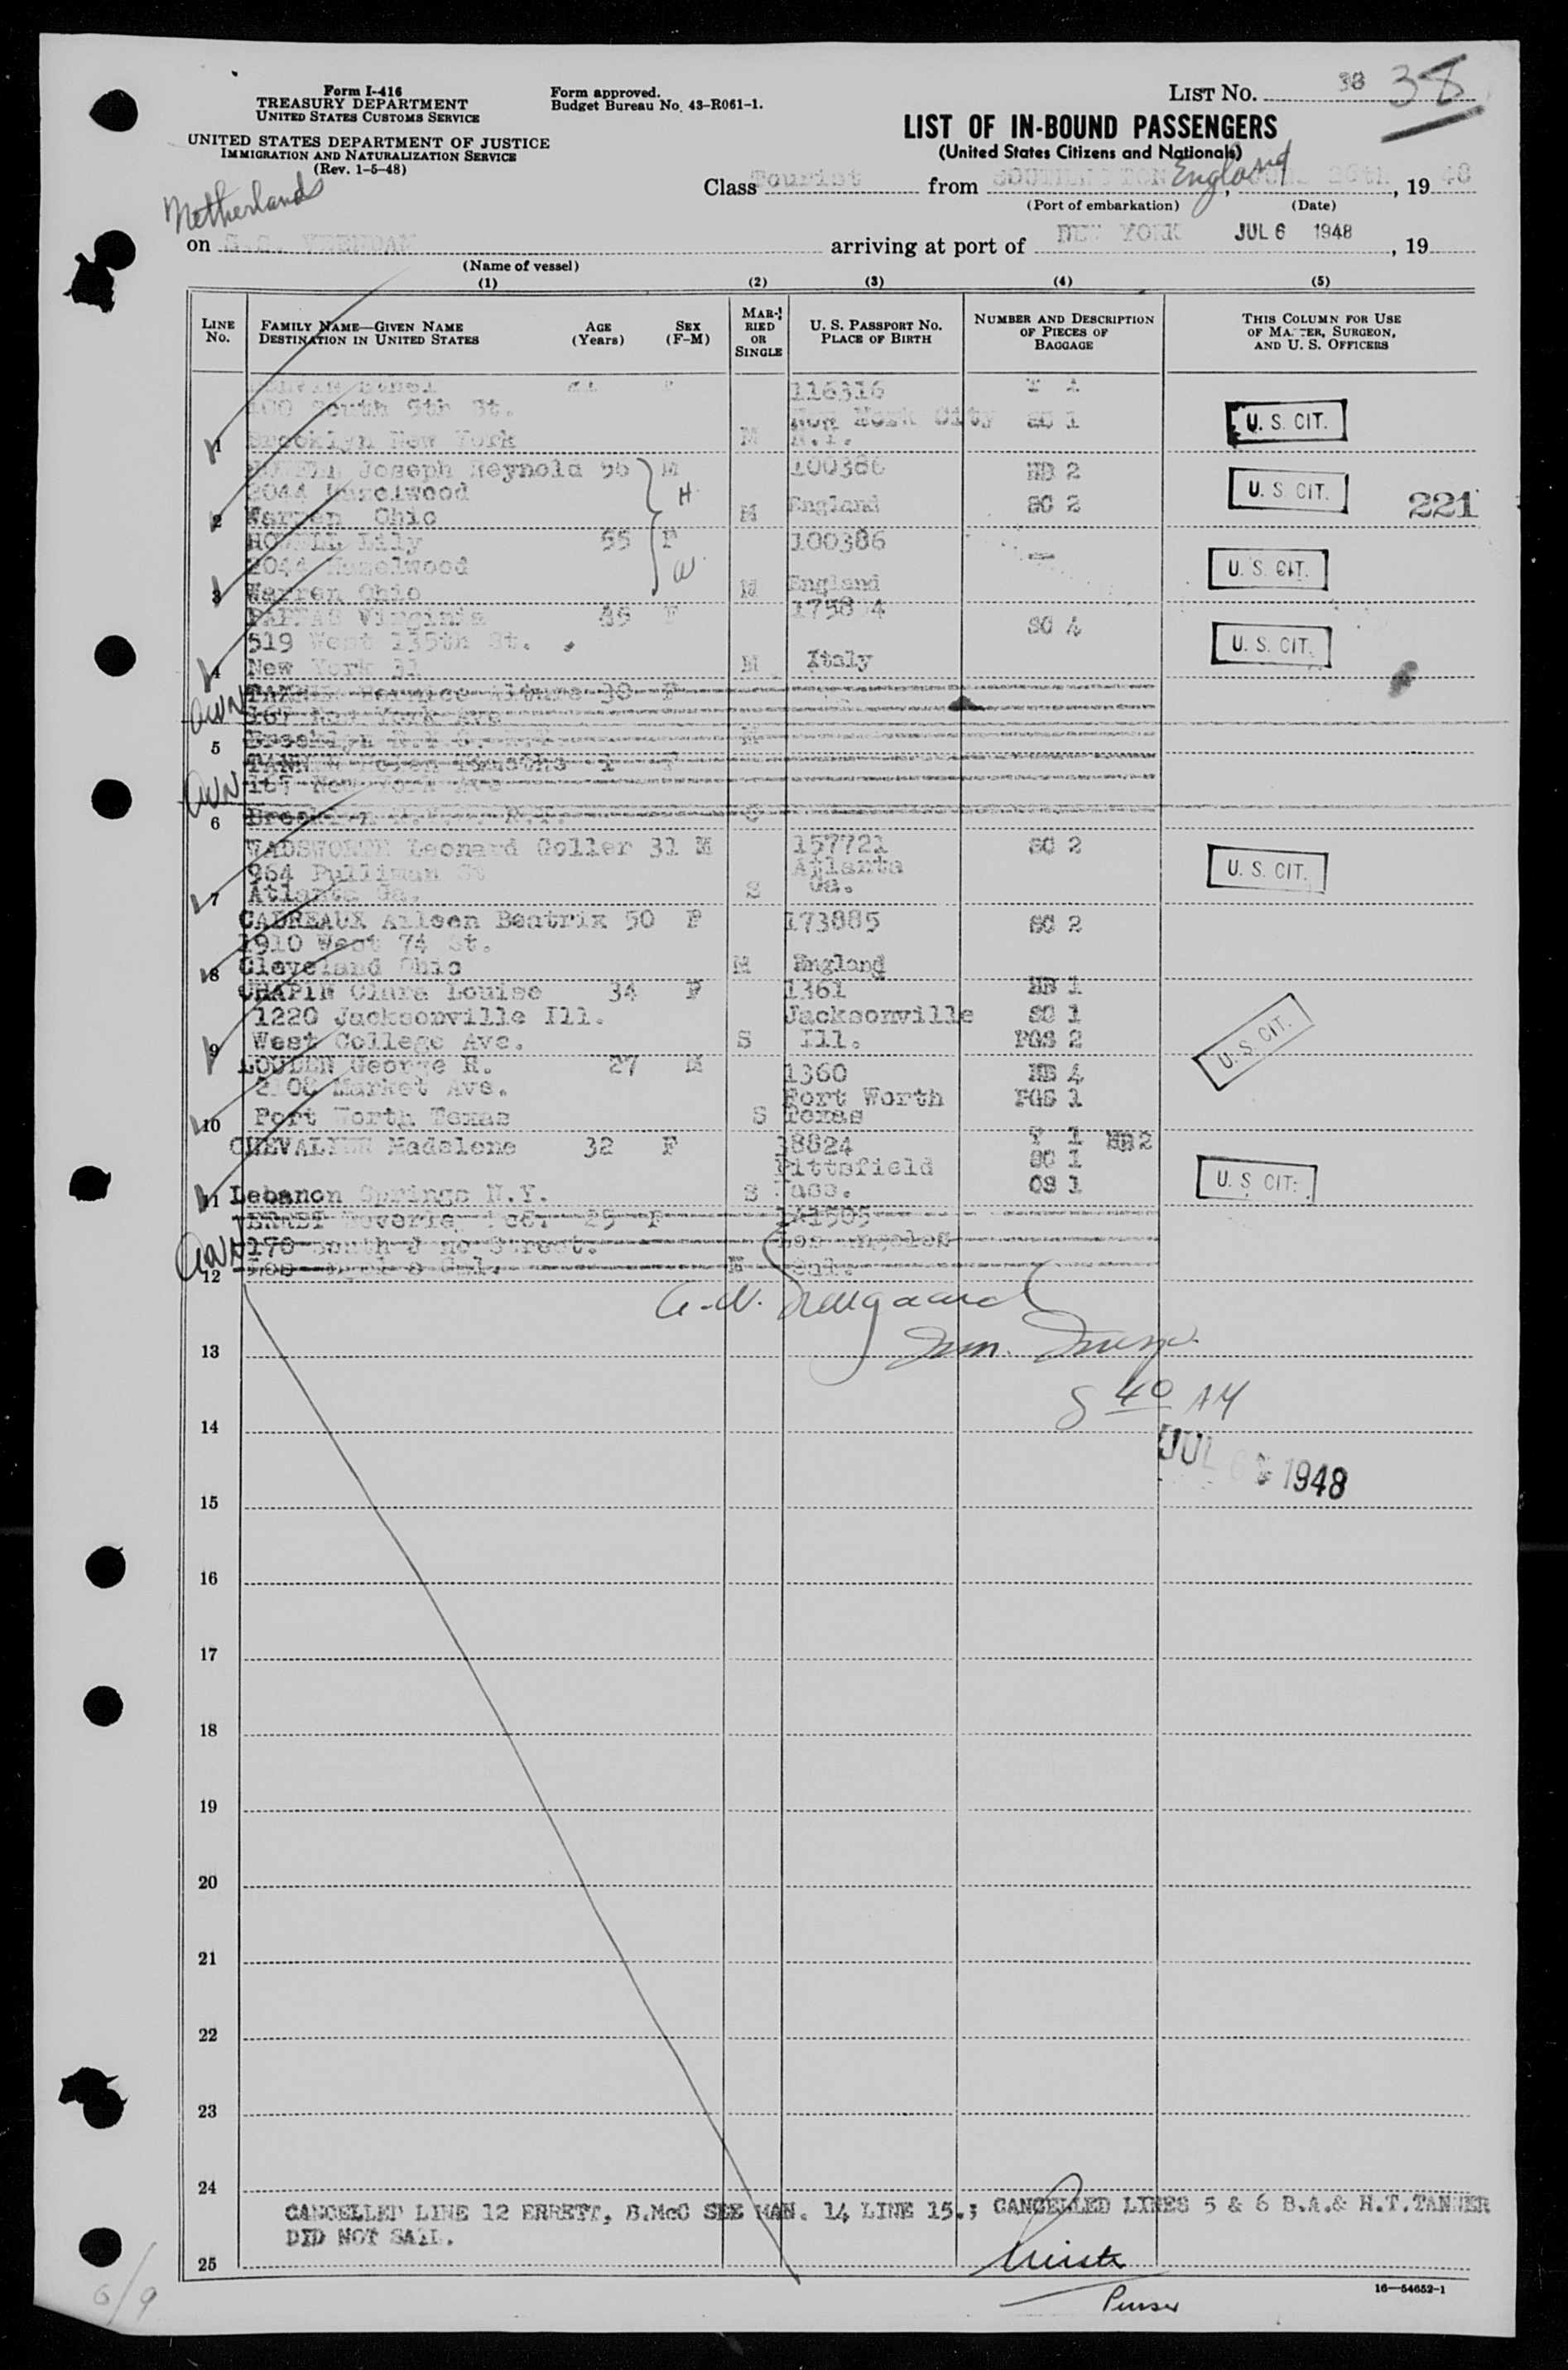 Form I-416
TREASURY DEPARTMENT
UNITED STATES CUSTOMS SERVICE
UNITED STATES DEPARTMENT OF JUSTICE
IMMIGRATION AND NATURALIZATION SERVICE
(Rev. 1-5-48)
Form approved.
Budget Bureau No. 43-R061-1.
LIST NO. 38 38
LIST OF IN-BOUND PASSENGERS
(United States Citizens and Nationals)
Class Tourist from England, 26th, 19 48
(Port of embarkation) (Date)
Netherlands
on S.S. arriving at port of NEW YORK JUL 6 1948, 19
(Name of vessel)
(1) (2) (3) (4) (5)
LINE NO.
FAMILY NAME—GIVEN NAME
DESTINATION IN UNITED STATES
AGE (Years)
SEX (F-M)
MARRIED OR SINGLE
U. S. PASSPORT NO.
PLACE OF BIRTH
NUMBER AND DESCRIPTION OF PIECES OF BAGGAGE
THIS COLUMN FOR USE OF MASTER, SURGEON, AND U. S. OFFICERS
116316 T 1
100 South 9th St. New York City SC 1 U. S. CIT.
1 Brooklyn New York M N.Y.
Joseph Reynold 56 M 100386 HB 2
2044 Hazelwood H U. S. CIT. 221
2 Warren Ohio M England SC 2
HOWELL Lily 55 F 100386 —
2044 Hazelwood W U. S. CIT.
3 Warren Ohio M England
PAPPAS Virginia F
519 West 135th St. SC 4 U. S. CIT.
4 New York 31 M Italy
AWN
TANNER 30 F
167 New York Ave
5 Brooklyn M
AWN
TANNER 1 F
167 New York Ave
6 Brooklyn
WADSWORTH Leonard Goller 31 M 157721 SC 2
964 Pulliman St Atlanta U. S. CIT.
7 Atlanta Ga. S Ga.
CADREAUX Aileen Beatrix 50 F 173885 SC 2
1910 West 74 St.
8 Cleveland Ohio M England
CHAPIN Clara Louise 34 F 1361 HB 1
1220 Jacksonville Ill. Jacksonville SC 1
9 West College Ave. S Ill. PGS 2 U. S. CIT.
LOUDEN George R. 27 M 1360 HB 4
Market Ave. Fort Worth PGS 1
10 Fort Worth Texas S Texas
CHEVALIER Madalene 32 F 38824 T 1 HB 2
Pittsfield SC 1
11 Lebanon Springs N.Y. S Mass. OS 1 U. S. CIT.
AWN
25 F 141505
170 South Street. Los Angeles
12 M Cal.
8 40 AM
13
14
JUL 6 1948
15
16
17
18
19
20
21
22
23
24
CANCELLED LINE 12 ERRETT, B.McC SEE MAN. 14 LINE 15.; CANCELLED LINES 5 & 6 B.A.& H.T.TANNER
DID NOT SAIL.
25
Purser
16—54652-1
6/9